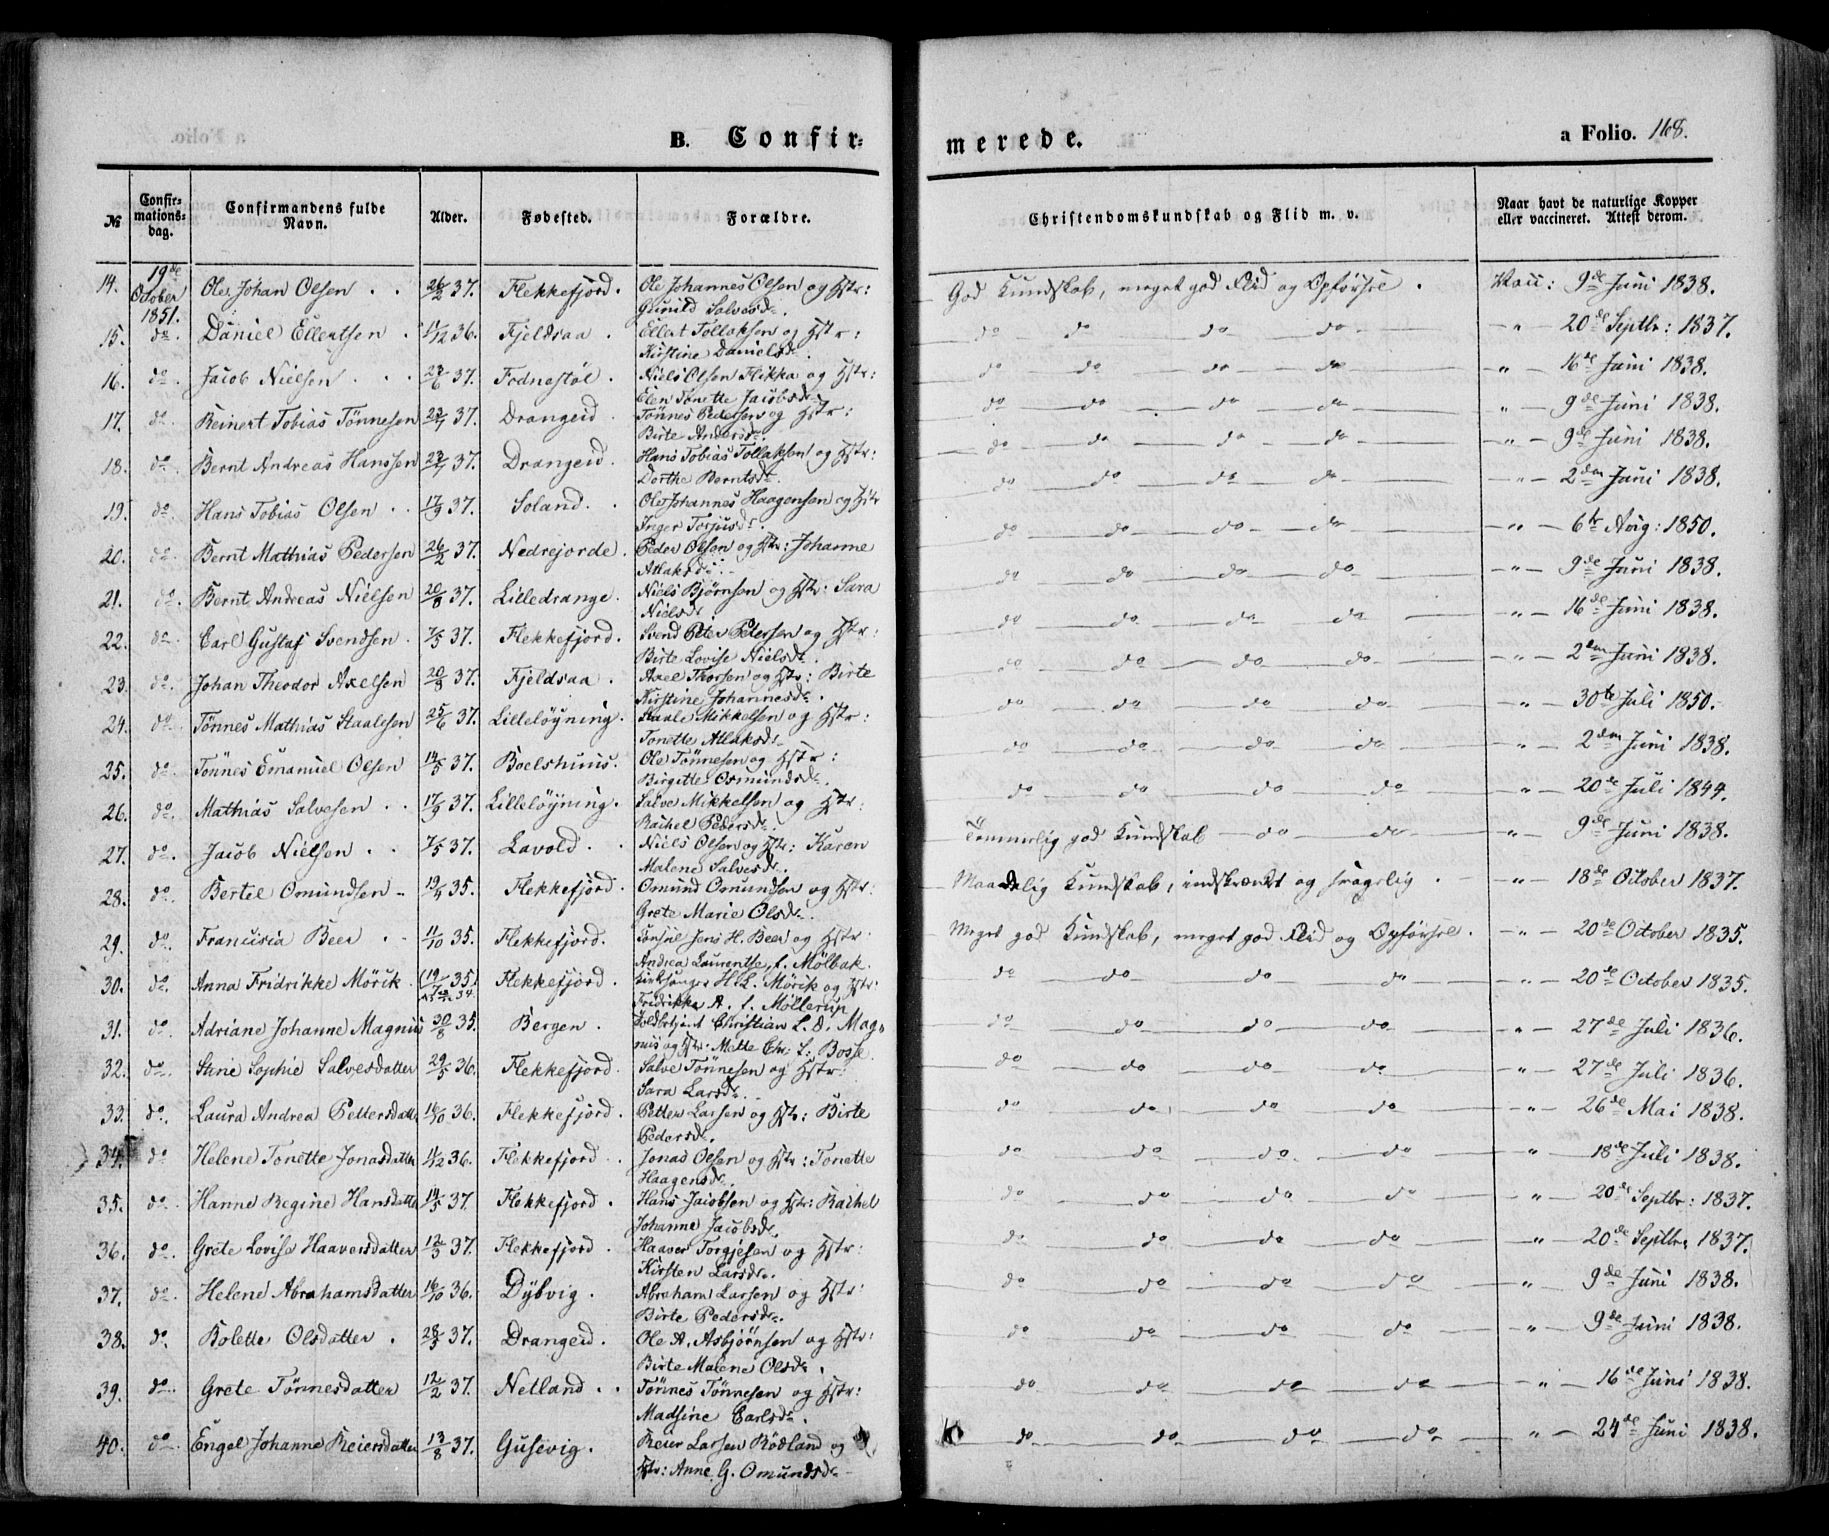 B. Confir= merede. a Folio. 168.
№ Confir=mations=dag. Confirmandens fulde Navn. Alder. Fødested. Forældre. Christendomskundskab og Flid m. v. Naar havt de naturlige Kopper eller vaccineret. Attest derom.
14. 19de October 1851. Ole Johan Olsen 26/2 37. Flekkefjord. Ole Johannes Olsen og Hstr: Gunild Salvesd. God Kundskab, meget god Flid og Opförsel. Vacc: 9de Juni 1838.
15. do. Daniel Ellertsen 11/12 36. Fjeldsaa. Ellert Tollaksen og Hstr: Kirstine Danielsd. do do do do " 20de Septbr: 1837.
16. do. Jacob Nielsen 27/6 37. Fodnestöl. Niels Olsen Flikka og Hstr: Elen Tonette Jacobsd. do do do do " 16de Juni 1838.
17. do. Reinert Tobias Tönnesen 37. Drangeid. Tönnes Pedersen og Hstr: Birte Andersd. do do do do " 9de Juni 1838.
18. do. Bernt Andreas Hanssen 37. Drangeid. Hans Tobias Tollaksen og Hstr: Dorthe Berntsd. do do do do " 9de Juni 1838.
19. do. Hans Tobias Olsen 17/9 37. Soland. Ole Johannes Haagensen og Hstr Inger Torjusd. do do do do " 2den Juni 1838.
20. do. Bernt Mathias Pedersen 26/2 37. Nedrejorde. Peder Olsen og Hstr: Johanne Atlaksd. do do do do " 6te Aug: 1850.
21. do. Bernt Andreas Nielsen 20/8 37. Lilledrange. Niels Bjørnsen og Hstr: Sara Nielsd. do do do do " 9de Juni 1838.
22. do. Carl Gustaf Svendsen 7/5 37. Flekkefjord. Svend Peter Petersen og Hstr: Birte Lovise Nielsd. do do do do " 16de Juni 1838.
23. do. Johan Theodor Axelsen 20/8 37. Fjeldsaa. Axel Thorsen og Hstr: Birte Kirstine Johannesd. do do do do " 2den Juni 1838.
24. do. Tönnes Mathias Staalesen 25/6 37. Lilleløyning. Staale Mikkelsen og Hstr: Tonette Atlaksd. do do do do " 30te Juli 1850.
25. do. Tönnes Emanuel Olsen 14/5 37. Boelshuus. Ole Tönnesen og Hstr: Birgitte Osmundsd. do do do do " 2den Juni 1838.
26. do. Mathias Salvesen 17/9 37. Lilleløyning. Salve Mikkelsen og Hstr: Rachel Pedersd. do do do do " 20de Juli 1844.
27. do. Jacob Nielsen 7/5 37. Lavold. Niels Olsen og Hstr: Karen Malene Salvesd. Temmelig god Kundskab do do " 9de Juni 1838.
28. do. Bertel Omundsen 19/4 35. Flekkefjord. Omund Omundsen og Hstr: Grete Marie Olsd. Maadelig Kundskab, indskrænkt og " 18de October 1837.
29. do. Francisca Beer 11/10 35. Flekkefjord. Consul Jens H. Beer og Hstr: Andrea Laurentse, f. Mölbak. Meget god Kundskab, meget god Flid og Opförsel. " 20de October 1835.
30. do. Anna Fridrikke Mörik 19/7 35 Flekkefjord. Kirkesanger H. L. Mörik og Hstr: Fridrikke A. f. Möllerup do do do do " 20de October 1835.
31. do. Adriane Johanne Magnus 30/8 35. Bergen. Toldbetjent Christian L. D. Magnus og Hstr: Mette Chr: f. Bosse. do do do do " 27de Juli 1836.
32. do. Stine Sophie Salvesdatter 29/5 36. Flekkefjord. Salve Tönnesen og Hstr: Sara Larsd. do do do do " 27de Juli 1836.
33. do. Laura Andrea Pettersdatter 36. Flekkefjord. Petter Larsen og Hstr: Birte Pedersd. do do do do " 26de Mai 1838.
34. do Helene Tonette Jonasdatter 36. Flekkefjord. Jonas Olsen og Hstr: Tonette Haagensd. do do do do " 18de Juli 1838.
35. do. Hanne Regine Hansdatter 14/5 37. Flekkefjord. Hans Jacobsen og Hstr: Rachel Johanne Jacobsd. do do do do " 20de Septbr: 1837.
36. do. Grete Lovise Haaversdatter 12/3 37. Flekkefjord. Haaver Torgjesen og Hstr: Kirsten Larsd. do do do do " 20de Septbr 1837.
37. do. Helene Abrahamsdatter 16/10 36. Dÿbvig. Abraham Larsen og Hstr: Birte Pedersd. do do do do " 9de Juni 1838.
38. do. Bolette Olsdatter 28/3 37. Drangeid. Ole A. Asbjørnsen og Hstr: Birte Malene Olsd. do do do do " 9de Juni 1838.
39. do. Grete Tönnesdatter 12/2 37. Netland. Tönnes Tönnesen og Hstr: Madsine Carlsd. do do do do " 16de Juni 1838.
40. do. Engel Johanne Reiersdatter 13/8 37. Gusevig. Reier Larsen Rödland og Hstr: Anne G. Omundsd. do do do do " 24de Juni 1838.